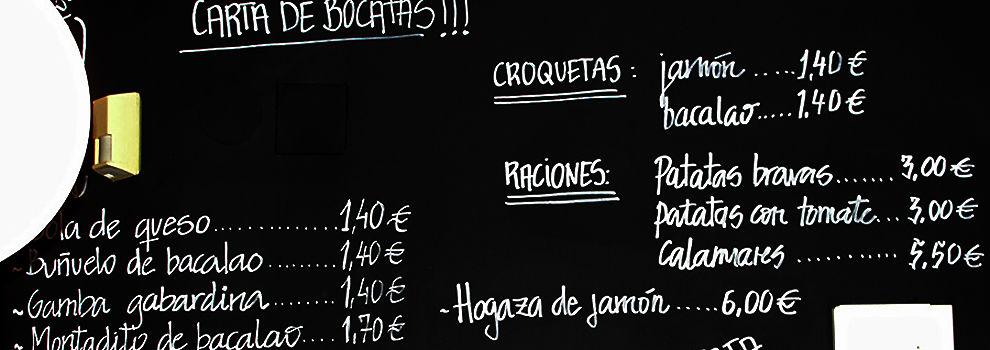 CARTA DE BOCATAS!!!
CROQUETAS: jamón .....1,40 €
bacalao.....1,40 €
RACIONES: Patatas bravas.......3,00 €
patatas con tomate...3,00 €
Calamares ............5,50 €
de queso..............1,40 €
~Buñuelo de bacalao .........1,40 €
~Gamba gabardina........1,40 €
~Montadito de bacalao....1,70 €
~Hogaza de jamón .....6,00 €